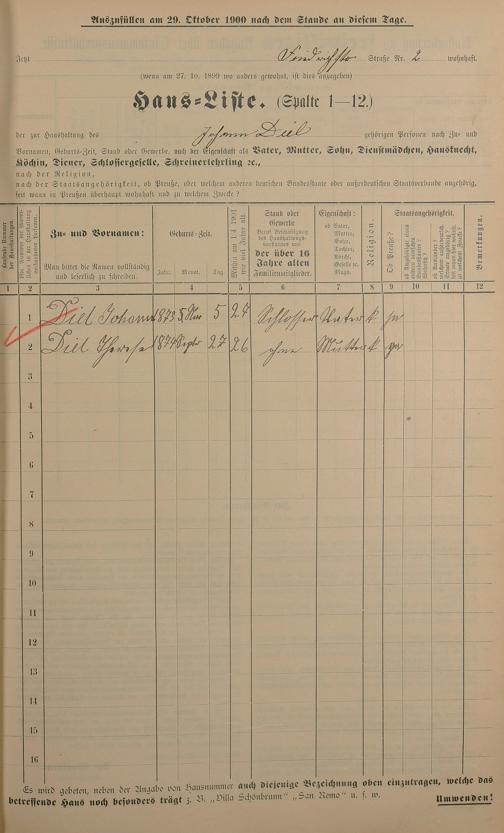 Auszufüllen am 29. Oktober 1900 nach dem Stande an diesem Tage.
Jetzt Friedrichstr Straße Nr. 2 wohnhaft.
(wenn am 27. 10. 1899 wo anders gewohnt, ist dies anzugeben)
Haus=Liste. (Spalte 1—12.)
der zur Haushaltung des Johann Diel gehörigen Personen nach Zu= und
Vornamen, Geburts=Zeit, Stand oder Gewerbe, nach der Eigenschaft als Vater, Mutter, Sohn, Dienstmädchen, Hausknecht,
Köchin, Diener, Schlossergeselle, Schreinerlehrling 2c.,
nach der Religion,
nach der Staatsangehörigkeit, ob Preuße, oder welchem anderen deutschen Bundesstaate oder außerdeutschen Staatsverbande angehörig,
seit wann in Preußen überhaupt wohnhaft und zu welchem Zwecke?
Zu= und Vornamen:
Man bittet die Namen vollständig
und leserlich zu schreiben.
Geburts=Zeit.
Jahr. Monat. Tag.
Stand oder
Gewerbe
Der über 16
Jahre alten
Familienmitglieder.
Eigenschaft:
ob Vater,
Mutter,
Sohn,
Tochter,
Köchin,
Geselle 2c.
Magd.
Religion
Staatsangehörigkeit.
Ob Preuße?
Bemerkungen.
1 2 3 4 5 6 7 8 9 10 11 12
1 Diel Johann 1873 5 27 Schlosser Vater k ja
2 Diel Therese 1874 27 26 ohne Mutter k ja
3
4
5
6
7
8
9
10
11
12
13
14
15
16
Es wird gebeten, neben der Angabe von Hausnummer auch diejenige Bezeichnung oben einzutragen, welche das
betreffende Haus noch besonders trägt z. B. „Villa Schönbrunn" „San Remo" u. s. w.
Umwenden!